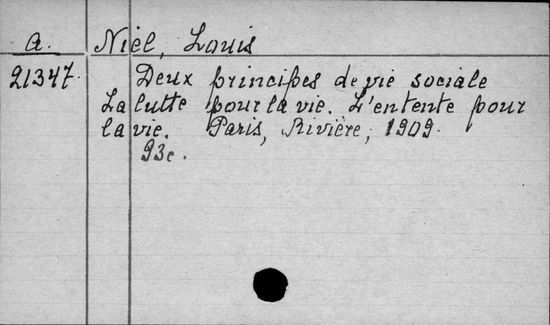 A. Niel, Louis
21347. Deux principes de vie sociale
La lutte pour la vie. L'entente pour
la vie. Paris, Rivière, 1909.
93c.